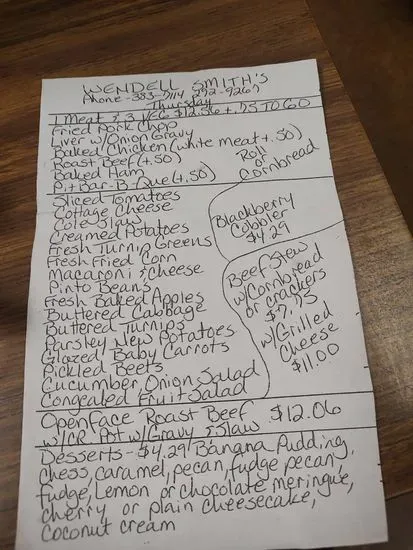 WENDELL SMITH'S
Phone - 383-7114 292-9267
Thursday
1 Meat & 3 VEG $12.56 + .75 TO GO
Fried Pork Chop
Liver w/Onion Gravy
Baked Chicken (white meat +.50)
Roast Beef (+.50)
Baked Ham
Pit Bar-B-Que (+.50)
Roll
or
Cornbread
Sliced Tomatoes
Cottage Cheese
Cole Slaw
Creamed Potatoes
Fresh Turnip Greens
Fresh Fried Corn
Macaroni & Cheese
Pinto Beans
Fresh Baked Apples
Buttered Cabbage
Buttered Turnips
Parsley New Potatoes
Glazed Baby Carrots
Pickled Beets
Cucumber, Onion Salad
Congealed Fruit Salad
Blackberry
Cobbler
$4.29
Beef Stew
w/Cornbread
or crackers
$7.75
w/Grilled
Cheese
$11.00
Openface Roast Beef $12.06
w/CR Pot w/Gravy & Slaw
Desserts - $4.29 Banana Pudding,
Chess, caramel, pecan, fudge pecan,
fudge, Lemon or chocolate meringue,
cherry or plain cheesecake,
Coconut cream